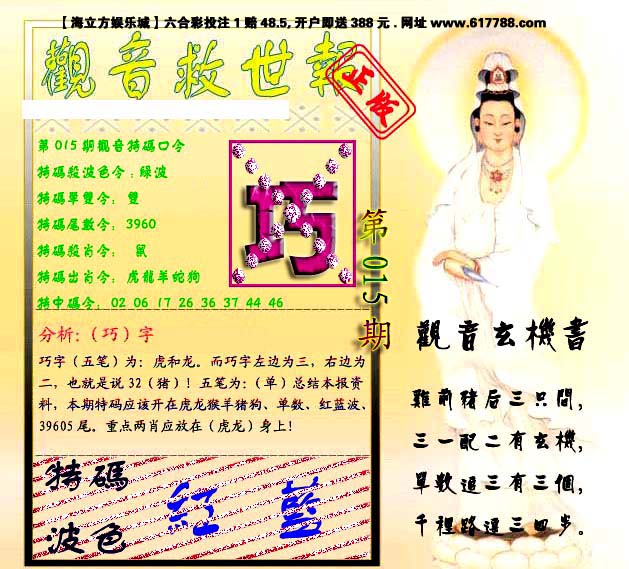 【海立方娱乐城】六合彩投注1赔48.5,开户即送388元.网址www.617788.com
觀音救世報
正版
第015期觀音特碼口令
特碼殺波色令:綠波
特碼單雙令: 雙
特碼尾數令: 3960
特碼殺肖令: 鼠
特碼出肖令: 虎龍羊蛇狗
特中碼令: 02 06 17 26 36 37 44 46
巧
第015期
分析:(巧)字
巧字(五笔)为:虎和龙。而巧字左边为三,右边为
二,也就是说32(猪)!五笔为:(单)总结本报资
料,本期特码应该开在虎龙猴羊猪狗、单数、红蓝波、
39605尾。重点两肖应放在(虎龙)身上!
特碼
波色
紅 藍
觀音玄機書
雞前豬后三只問,
三一配二有玄機,
單數過三有三個,
千裡路還三四步。